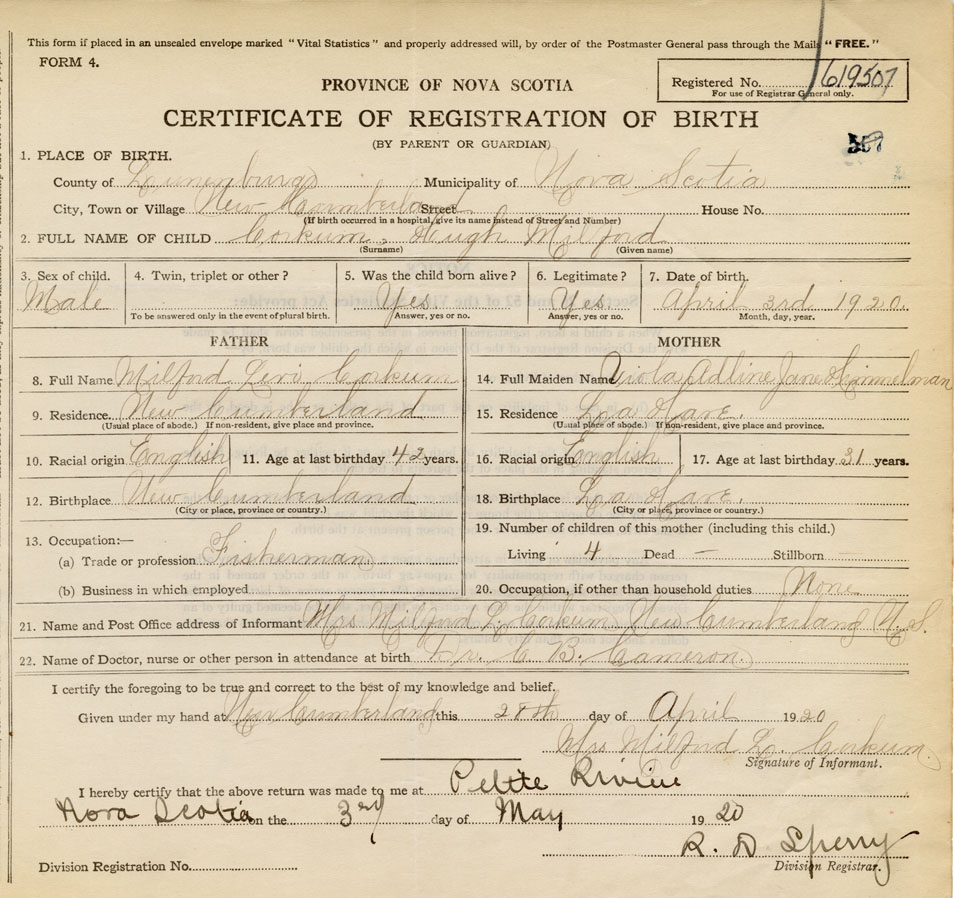 This form if placed in an unsealed envelope marked "Vital Statistics" and properly addressed will, by order of the Postmaster General pass through the Mails "FREE."
FORM 4.
PROVINCE OF NOVA SCOTIA
Registered No. 619507
For use of Registrar General only.
CERTIFICATE OF REGISTRATION OF BIRTH
(BY PARENT OR GUARDIAN)
357
1. PLACE OF BIRTH.
County of Lunenburg Municipality of Nova Scotia
City, Town or Village New Cumberland Street House No.
(If birth occurred in a hospital, give its name instead of Street and Number)
2. FULL NAME OF CHILD Corkum, Hugh Milford
(Surname) (Given name)
3. Sex of child. 4. Twin, triplet or other? 5. Was the child born alive? 6. Legitimate? 7. Date of birth.
Male Yes. Yes. April 3rd 1920.
To be answered only in the event of plural birth. Answer, yes or no. Answer, yes or no. Month, day, year.
FATHER
8. Full Name Milford Levi Corkum
9. Residence. New Cumberland
(Usual place of abode.) If non-resident, give place and province.
10. Racial origin English 11. Age at last birthday 42 years.
12. Birthplace New Cumberland
(City or place, province or country.)
13. Occupation:—
(a) Trade or profession Fisherman
(b) Business in which employed
MOTHER
14. Full Maiden Name Viola Adline Jane Himmelman
15. Residence La Have.
(Usual place of abode.) If non-resident, give place and province.
16. Racial origin English 17. Age at last birthday 31 years.
18. Birthplace La Have.
(City or place, province or country.)
19. Number of children of this mother (including this child.)
Living 4 Dead — Stillborn
20. Occupation, if other than household duties None
21. Name and Post Office address of Informant Mrs Milford L. Corkum New Cumberland N.S.
22. Name of Doctor, nurse or other person in attendance at birth Dr. C B. Cameron
I certify the foregoing to be true and correct to the best of my knowledge and belief.
Given under my hand at New Cumberland this 28th day of April 1920
Mrs Milford L. Corkum.
Signature of Informant.
I hereby certify that the above return was made to me at Petite Riviere
Nova Scotia on the 3rd day of May 1920
R. D Sperry
Division Registration No. Division Registrar.